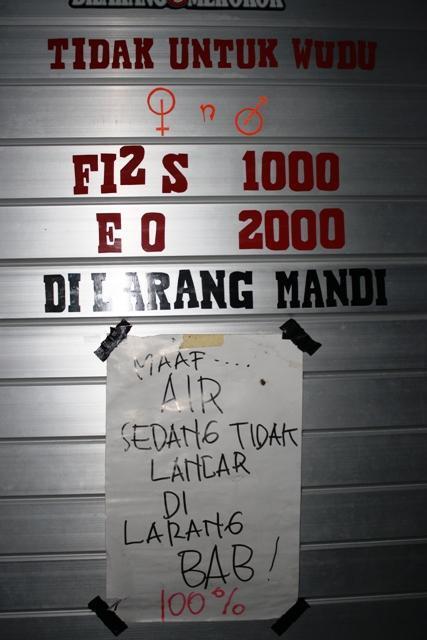 DILARANG MEROKOK
TIDAK UNTUK WUDU
♀ n ♂
FI2S 1000
EO 2000
DILARANG MANDI
MAAF....
AIR
SEDANG TIDAK
LANCAR
DI
LARANG
BAB!
100%